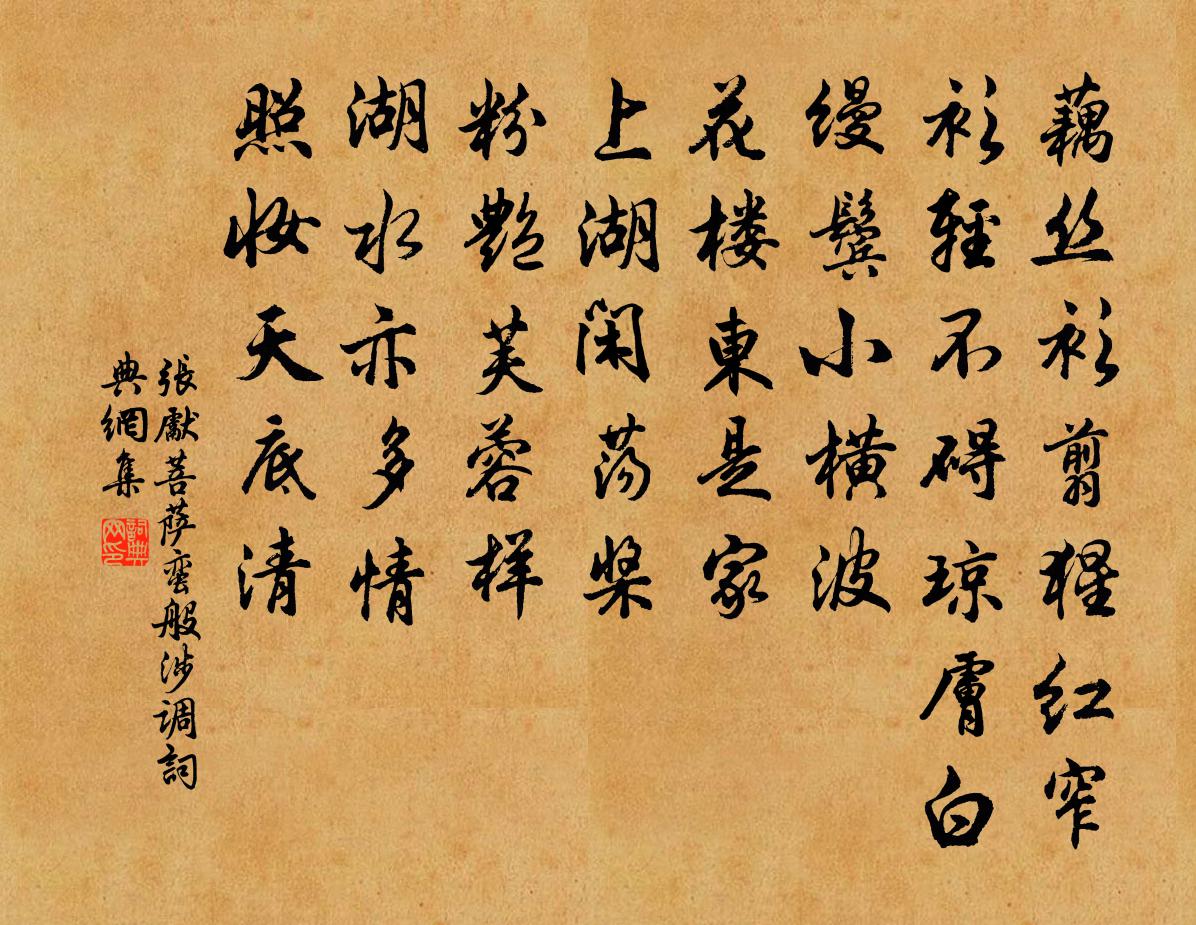 藕丝衫剪猩红窄
衫輕不碍琼膚白
缦鬓小横波
花楼東是家
上湖闲荡桨
粉艶芙蓉样
湖水亦多情
照妆天底清
張獻菩萨蛮般涉调詞
典網集
詞典网印